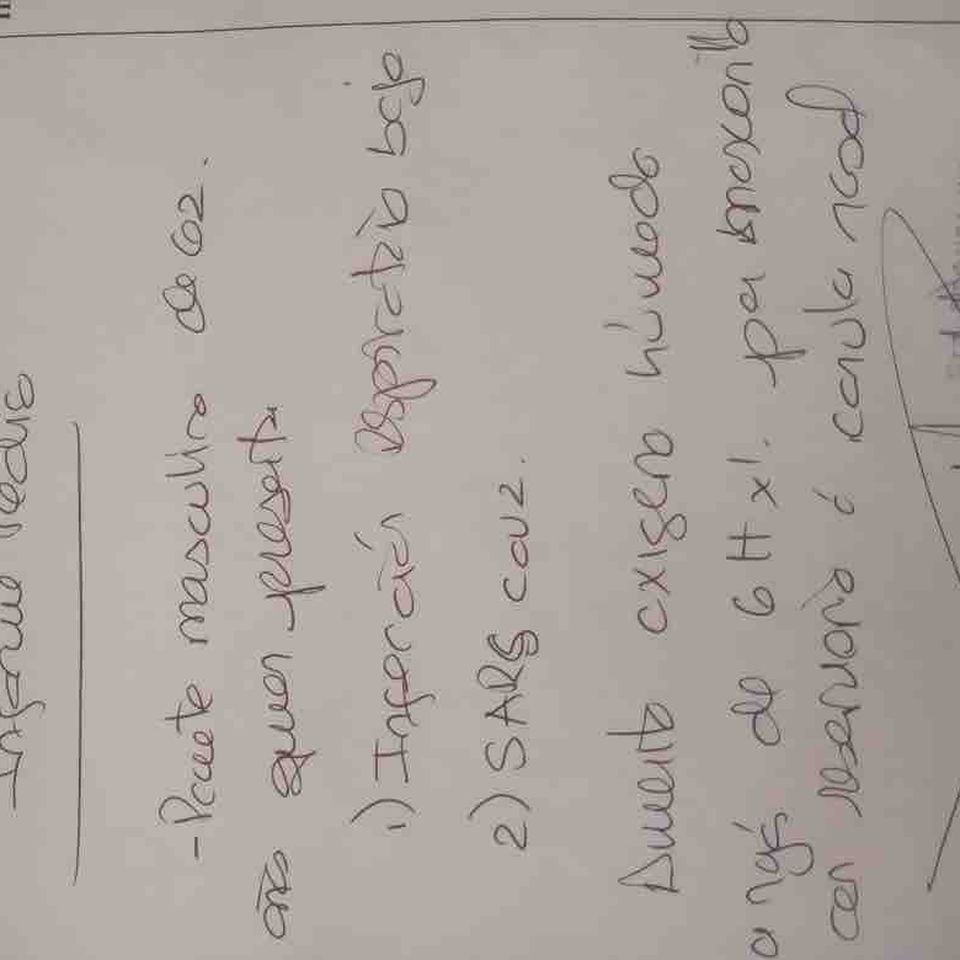 Informe Medic
-Paciente masculino de 62.
año quien presenta
1) Infección Respiratorio bajo
2) SARS COV2.
Amerito oxigeno húmedo
a ngs de 6 lt x1. por mascarilla
con reservorio ó canula nasal